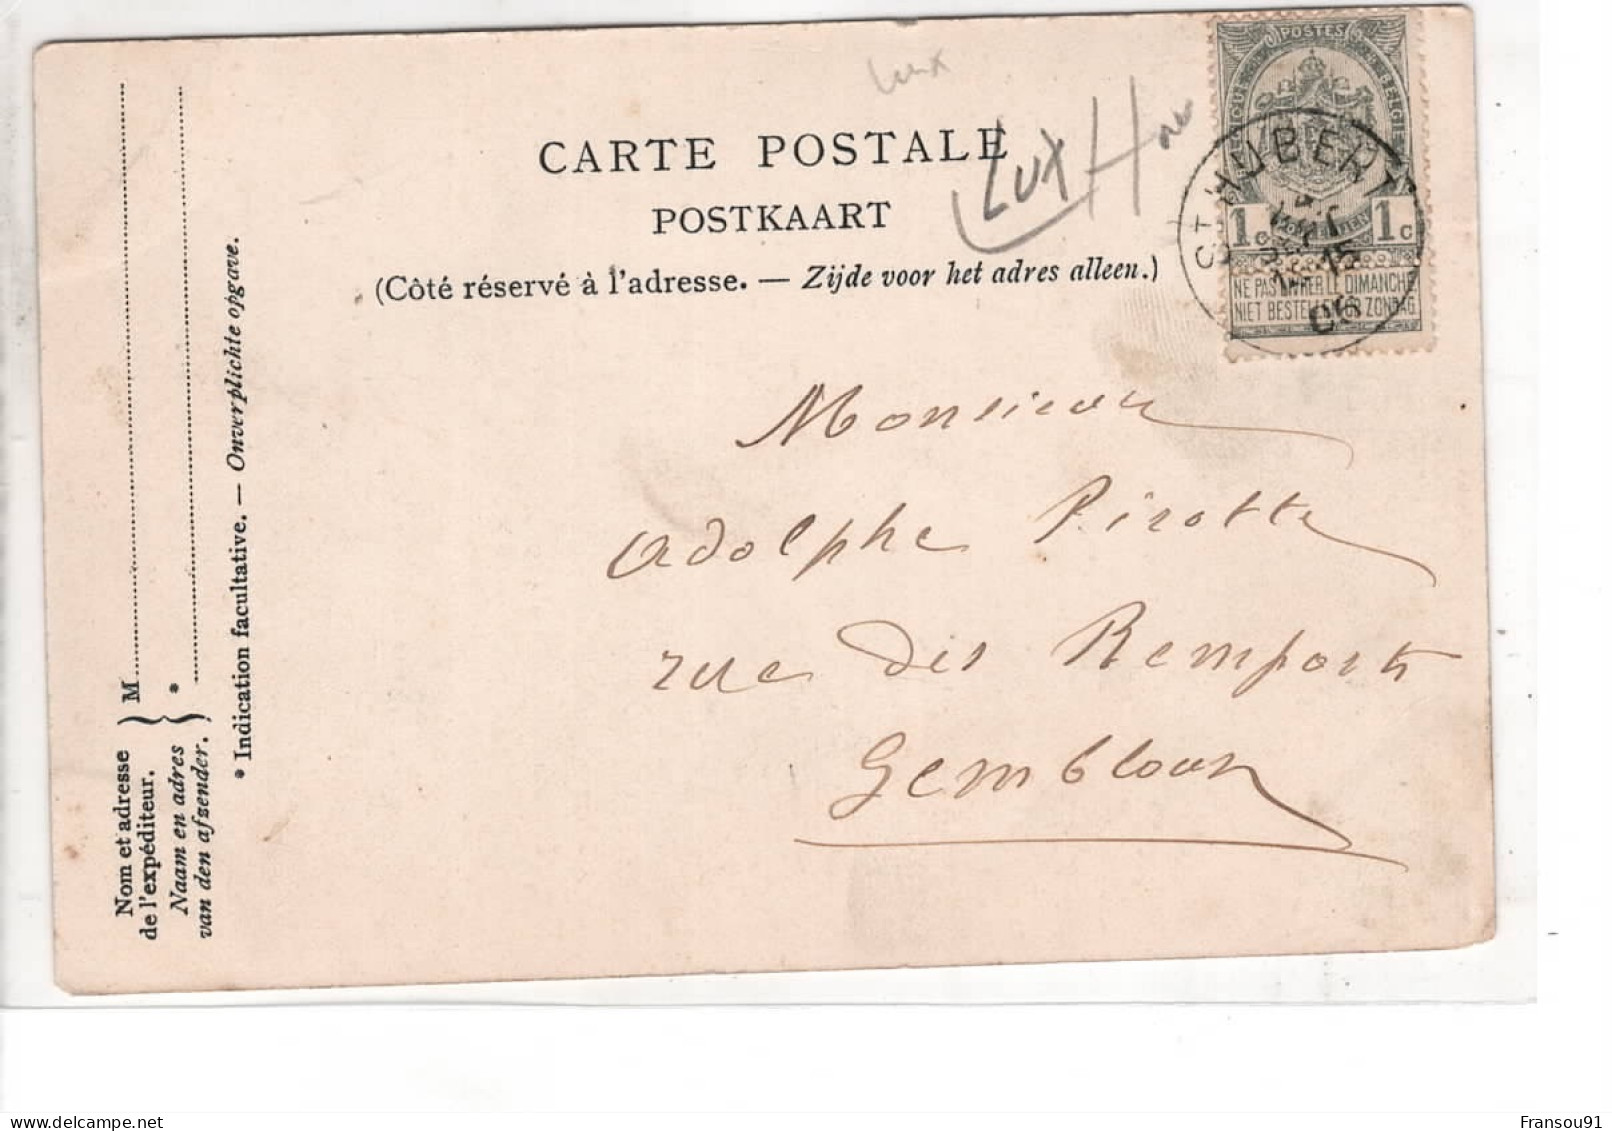 lux
CARTE POSTALE
LUX H
POSTKAART
(Côté réservé à l'adresse. — Zijde voor het adres alleen.)
POSTES
BELGIQUE BELGIE
1c 1c
NE PAS LIVRER LE DIMANCHE
NIET BESTELLEN OP ZONDAG
ST HUBERT
15
06
Monsieur
Adolphe Pirotte
rue des Remparts
Gembloux
Nom et adresse
de l'expéditeur.
Naam en adres
van den afzender.
M
*
* Indication facultative. — Onverplichte opgave.
delcampe.net
Fransou91